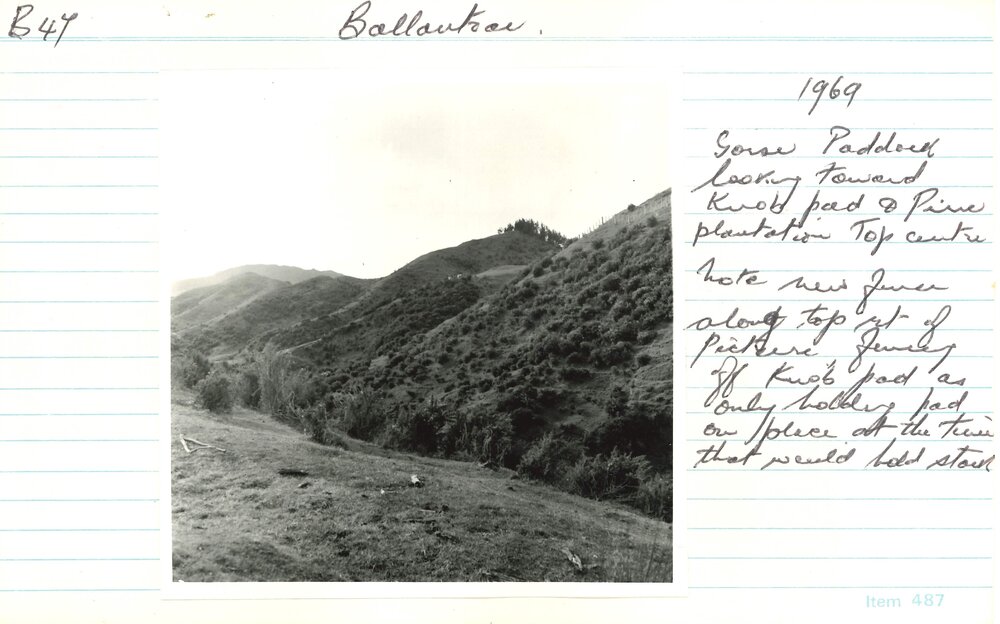 B47
Ballantrae.
1969
Gorse Paddock
looking toward
Knob pad & Pine
plantation Top centre
Note new fence
along top rt of
Picture, fencing
off Knob pad as
only holding pad
on place at the time
that would hold stock
Item 487